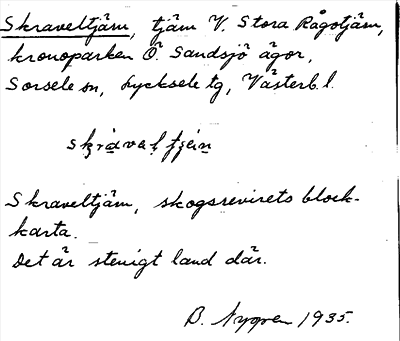 Skraveltjärn, tjärn V. Stora Rågotjärn,
kronoparken Ö. Sandsjö ägor,
Sorsele sn, Lycksele tg, Västerb. l.
skrável
Skraveltjärn, skogsrevirets block-
karta.
Det är stenigt land där.
B. Nygren 1935.